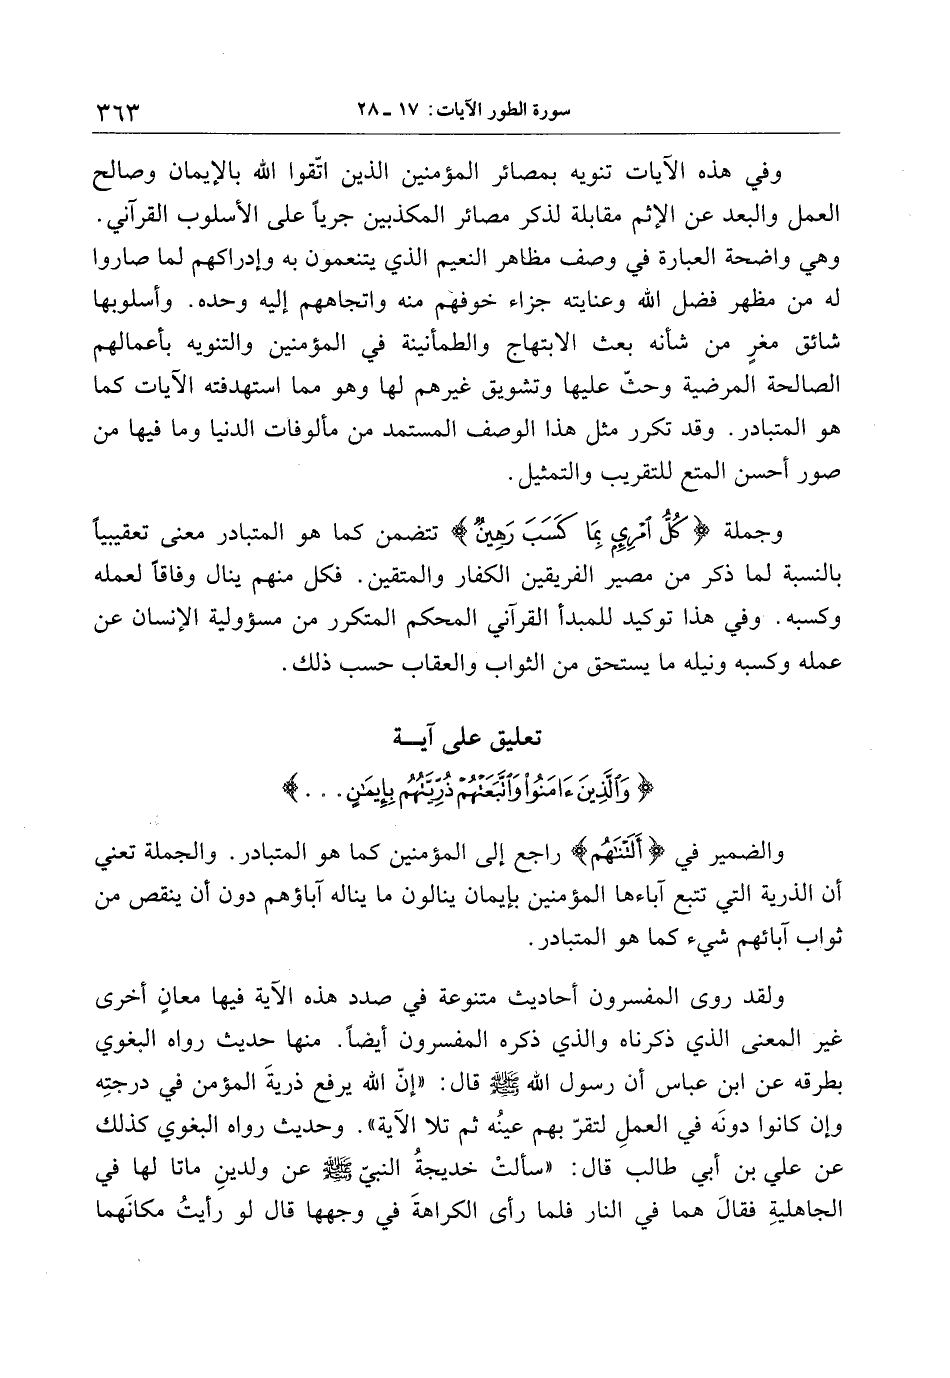 سورة الطور الآيات: ١٧ ـ ٢٨ ٣٦٣
وفي هذه الآيات تنويه بمصائر المؤمنين الذين اتّقوا الله بالإيمان وصالح
العمل والبعد عن الإثم مقابلة لذكر مصائر المكذبين جرياً على الأسلوب القرآني.
وهي واضحة العبارة في وصف مظاهر النعيم الذي يتنعمون به وإدراكهم لما صاروا
له من مظهر فضل الله وعنايته جزاء خوفهم منه واتجاههم إليه وحده. وأسلوبها
شائق مغرٍ من شأنه بعث الابتهاج والطمأنينة في المؤمنين والتنويه بأعمالهم
الصالحة المرضية وحثّ عليها وتشويق غيرهم لها وهو مما استهدفته الآيات كما
هو المتبادر. وقد تكرر مثل هذا الوصف المستمد من مألوفات الدنيا وما فيها من
صور أحسن المتع للتقريب والتمثيل.
وجملة ﴿كُلُّ ٱمْرِيِٕۭ بِمَا كَسَبَ رَهِينٌ﴾ تتضمن كما هو المتبادر معنى تعقيبياً
بالنسبة لما ذكر من مصير الفريقين الكفار والمتقين. فكل منهم ينال وفاقاً لعمله
وكسبه. وفي هذا توكيد للمبدأ القرآني المحكم المتكرر من مسؤولية الإنسان عن
عمله وكسبه ونيله ما يستحق من الثواب والعقاب حسب ذلك.
تعليق على آيـــة
﴿وَٱلَّذِينَ ءَامَنُوا۟ وَٱتَّبَعَتْهُمْ ذُرِّيَّتُهُم بِإِيمَٰنٍ. . .﴾
والضمير في ﴿أَلَتْنَٰهُم﴾ راجع إلى المؤمنين كما هو المتبادر. والجملة تعني
أن الذرية التي تتبع آباءها المؤمنين بإيمان ينالون ما يناله آباؤهم دون أن ينقص من
ثواب آبائهم شيء كما هو المتبادر.
ولقد روى المفسرون أحاديث متنوعة في صدد هذه الآية فيها معانٍ أخرى
غير المعنى الذي ذكرناه والذي ذكره المفسرون أيضاً. منها حديث رواه البغوي
بطرقه عن ابن عباس أن رسول الله ﷺ قال: «إنّ الله يرفع ذريةَ المؤمن في درجتِه
وإن كانوا دونَه في العملِ لتقرّ بهم عينُه ثم تلا الآية». وحديث رواه البغوي كذلك
عن علي بن أبي طالب قال: «سألتْ خديجةُ النبيّ ﷺ عن ولدينِ ماتا لها في
الجاهليةِ فقالَ هما في النار فلما رأى الكراهةَ في وجهها قال لو رأيتُ مكانَهما